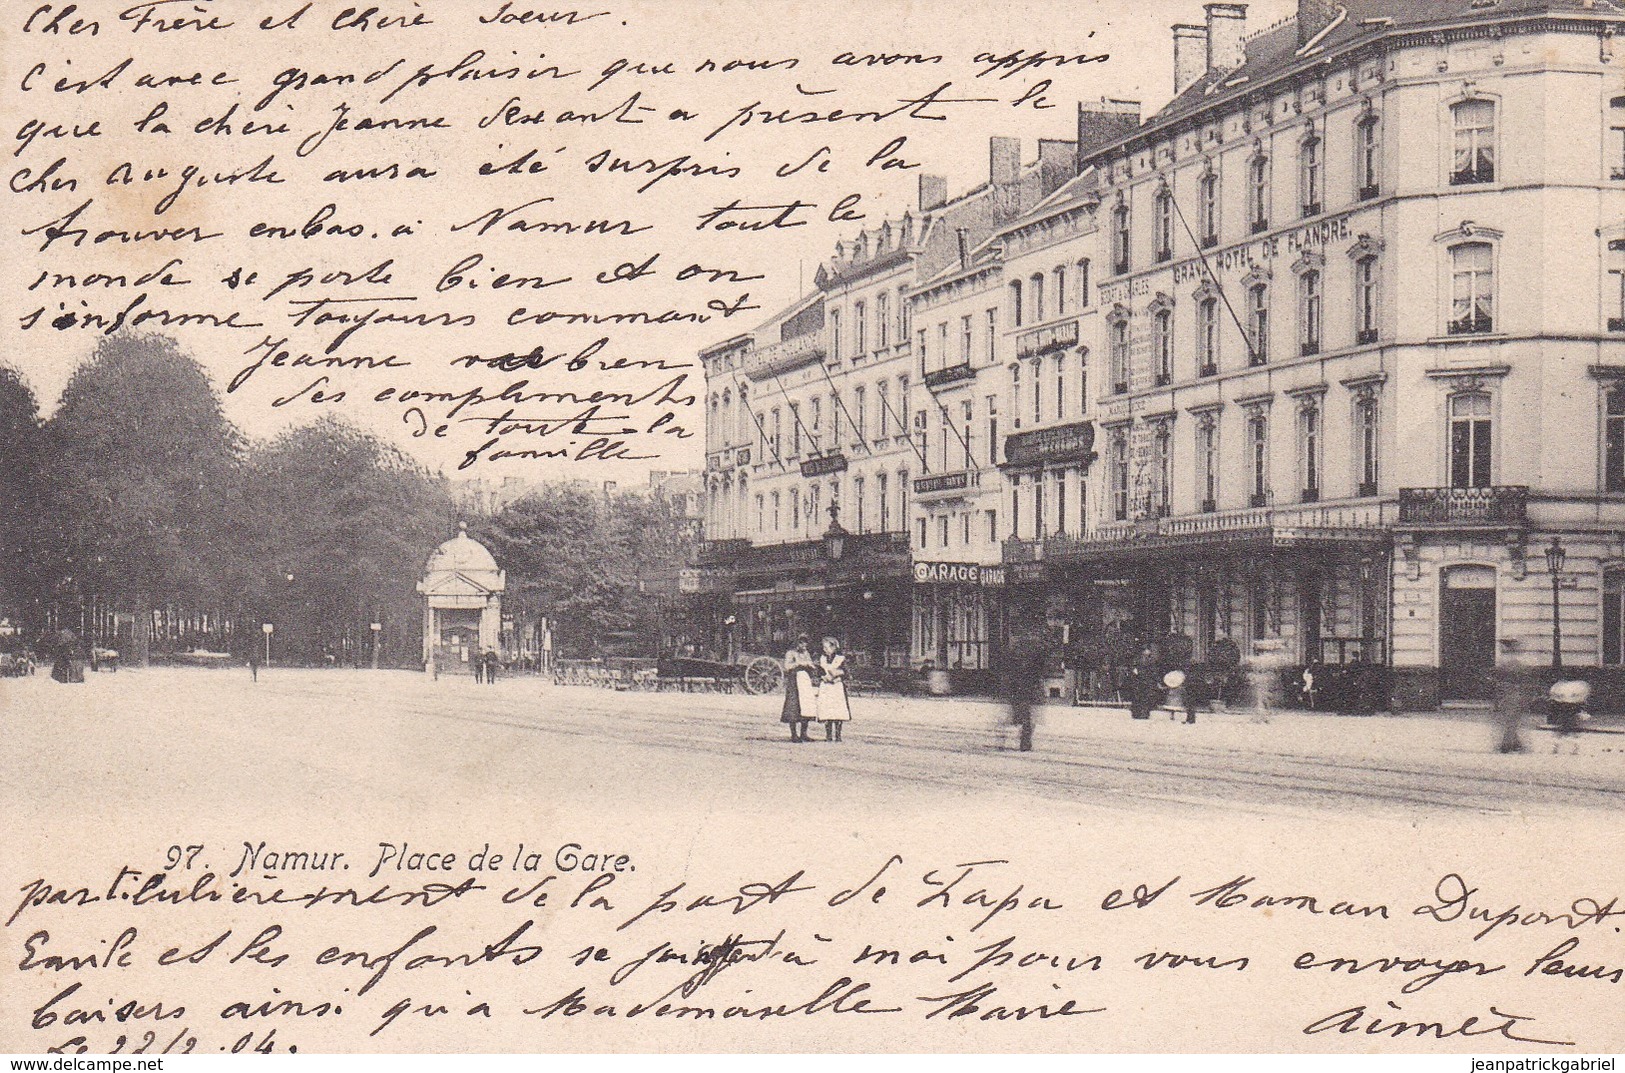 Cher Frère et chère Soeur.
C'est avec grand plaisir que nous avons appris
que la chère Jeanne a présent le
cher Auguste aura été surpris de la
trouver en bas. à Namur tout le
monde se porte bien et on
s'informe toujours commant
Jeanne va bien
des compliments
de toute la
famille
GRAND HOTEL DE FLANDRE.
GARAGE GARAGE
97. Namur. Place de la Gare.
partilulièrement de la part de Papa et Maman Dupont.
Emile et les enfants se à moi pour vous envoyer leurs
baisers ainsi qu'a Mademoiselle Marie
Aimée
Le 22/2.04.
jeanpatrickgabriel